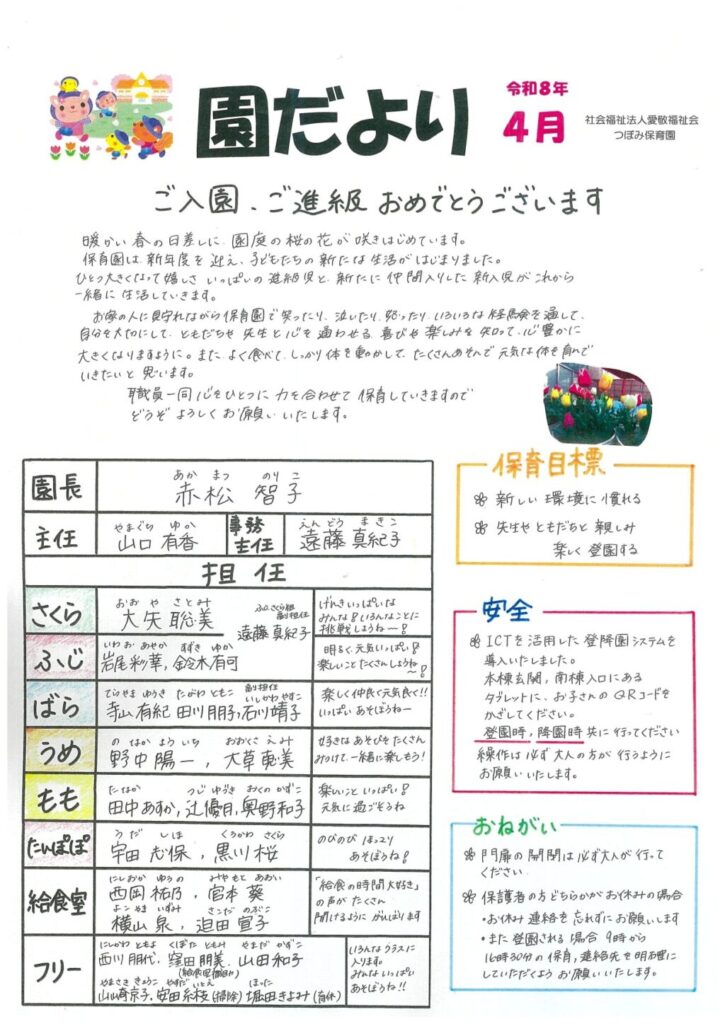 園だより
令和8年
4月
社会福祉法人愛敬福祉会
つぼみ保育園
ご入園、ご進級 おめでとうございます
暖かい春の日差しに、園庭の桜の花が咲きはじめています。
保育園は、新年度を迎え、子どもたちの新たな生活がはじまりました。
ひとつ大きくなって嬉しさいっぱいの進級児と、新たに仲間入りした新入児がこれから
一緒に生活していきます。
お家の人に見守れながら保育園で笑ったり、泣いたり、怒ったり、いろいろな経験を通して、
自分を大切にして、ともだちや先生と心を通わせる喜びや楽しみを知って、心豊かに
大きくなりますように。また、よく食べて、しっかり体を動かして、たくさんあそんで元気な体を育んで
いきたいと思います。
職員一同心をひとつに力を合わせて保育していきますので
どうぞよろしくお願いいたします。
園長
あか まつ のり こ
赤松 智子
主任
やまぐち ゆか
山口 有香
事務主任
えんどう まきこ
遠藤 真紀子
担任
さくら
おおや さとみ
大矢 聡美
ふじ・さくら組
副担任
遠藤 真紀子
げんきいっぱいな
みんな!いろんなことに
挑戦しようね〜!
ふじ
いわお あやか すずき ゆか
岩尾彩華,鈴木有可
明るく、元気いっぱい!
楽しいことたくさんしようね〜!
ばら
てらやま ゆうき たがわ ともこ 副担任 いしかわ やすこ
寺山有紀 田川朋子,石川靖子
楽しく仲良く元気良く!!
いっぱいあそぼうねー
うめ
のなか よういち おおくさ えみ
野中陽一,大草恵美
好きなあそびをたくさん
みつけて、一緒に楽しもう!
もも
たなか つじ ゆうき おくの かずこ
田中あすか,辻優月,奥野和子
楽しいこといっぱい!
元気に過ごそうね
たんぽぽ
うだ しほ くろかわ さくら
宇田志保,黒川桜
のびのび ほっこり
あそぼうね!
給食室
にしおか ゆうの みやもと あおい
西岡祐乃,宮本葵
よこやま いずみ さこだ のぶこ
横山泉,迫田宣子
「給食の時間大好き」
の声がたくさん
聞けるようにがんばります
フリー
にしかわ ともよ くぼた ともみ やまだ かずこ
西川朋代,窪田朋美,山田和子
やまさき きょうこ やすだ いとえ ほった
山﨑京子,安田糸枝(掃除)堀田きよみ(育休)
いろんなクラスに
入ります。
みんないっぱい
あそぼう!!
保育目標
新しい環境に慣れる
先生やともだちと親しみ
楽しく登園する
安全
ICTを活用した登降園システムを
導入いたしました。
本棟玄関,南棟入口にある
タブレットに、お子さんのQRコードを
かざしてください。
登園時,降園時共に行ってください
操作は必ず大人の方が行うように
お願いいたします。
おねがい
門扉の開閉は必ず大人が行って
ください
保護者の方どちらかがお休みの場合
・お休み連絡を忘れずにお願いします
・また登園される場合9時から
16時30分の保育,連絡先を明確に
していただくようお願いいたします。